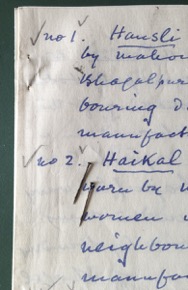 no 1. Hansli
by mahom
Bhagalpur
bouring di
manufact
no 2. Haikal
worn by
women
neighbou
manufa